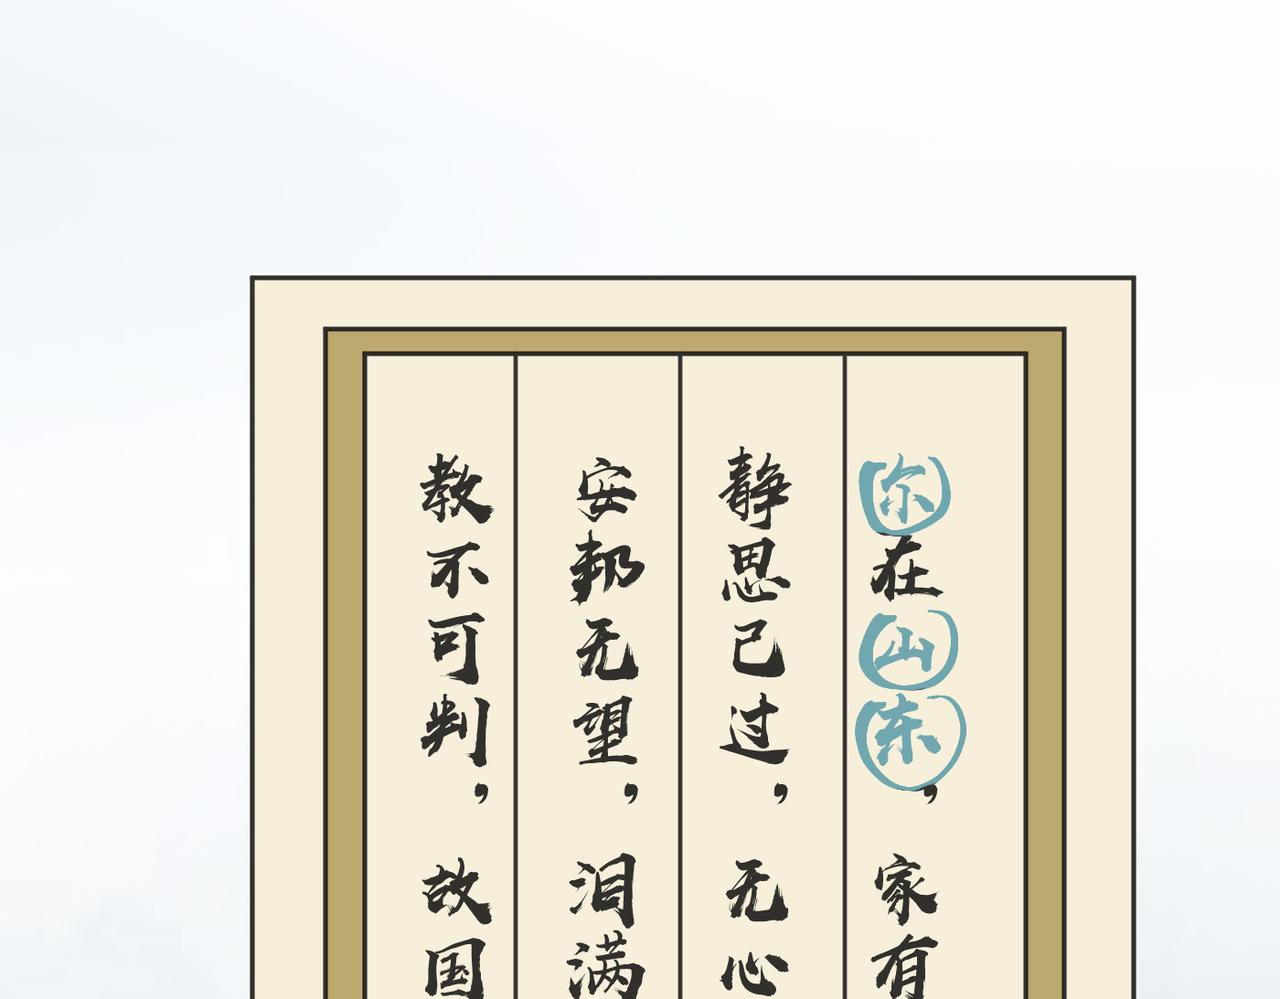 你在山东，家有
静思己过，无心
安邦无望，泪满
教不可判，故国